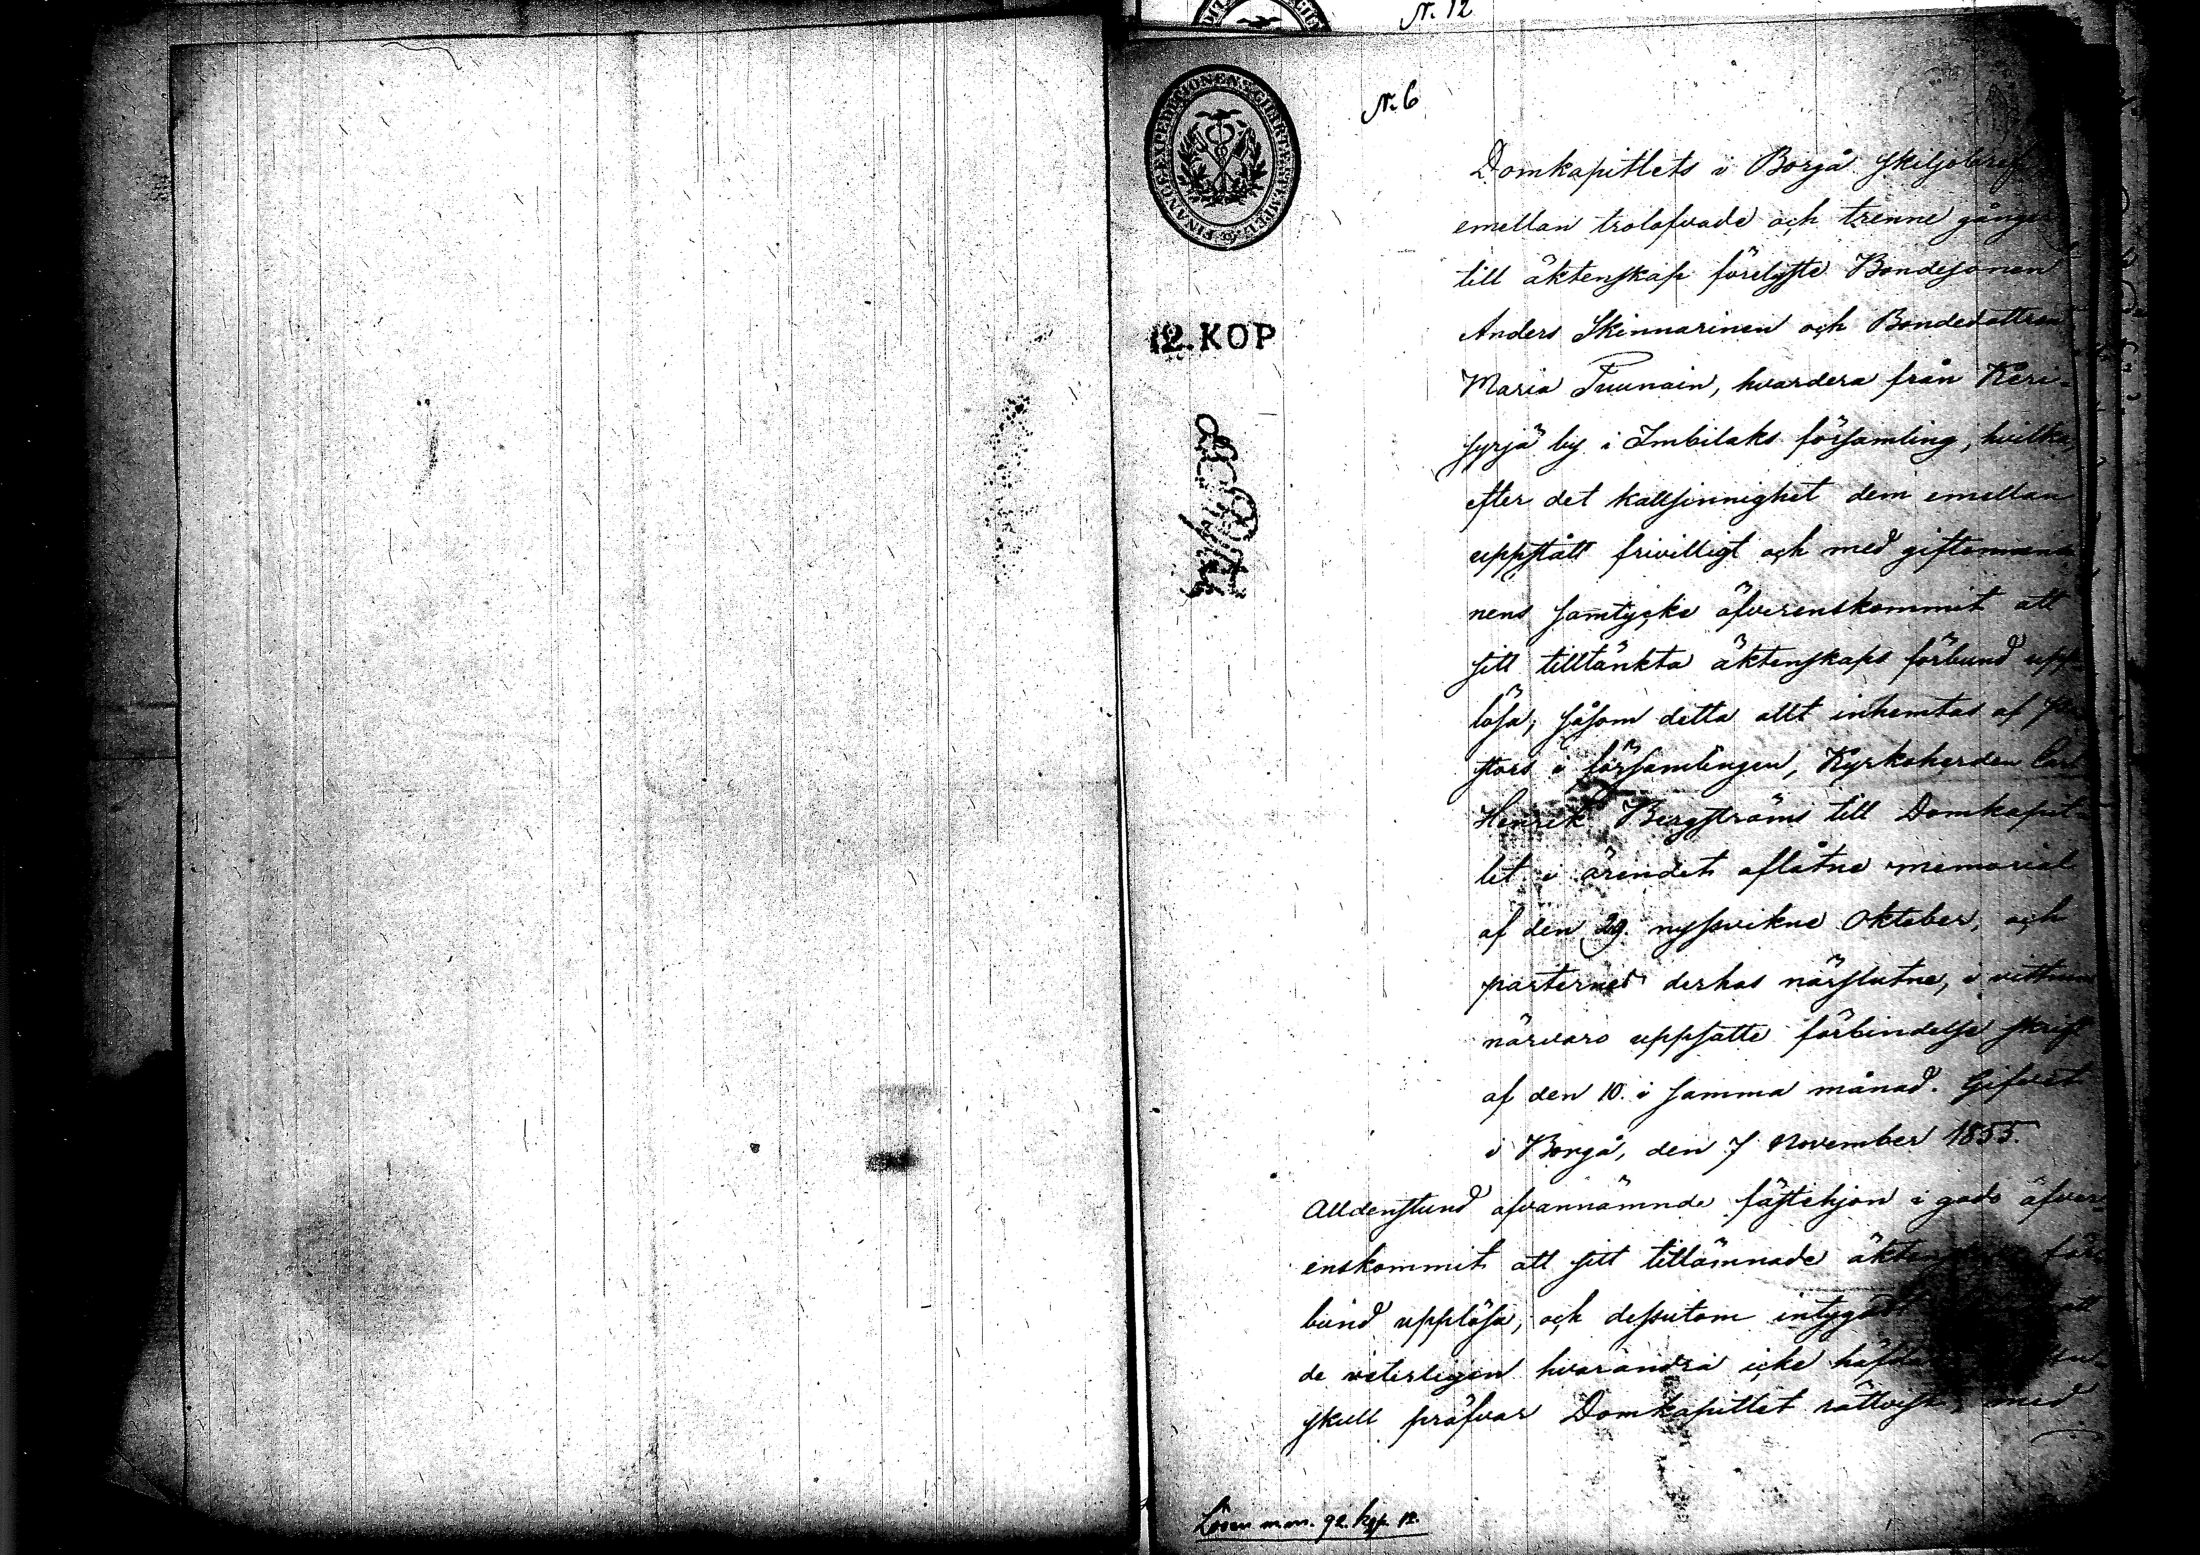 N. 12
N. 6
FINANCE EXPEDITIONENS CHARTÆ STEMPEL
12. KOP
Domkapitlets i Borgå skiljobref
emellan trolofvade och trenne gånger
till äktenskap förelyste Bondesonen
Anders Skinnarinen och Bondedottren
Maria Puunain, hvardera från Keri-
syrjä by i Imbilaks församling, hvilka,
efter det kallsinnighet dem emellan
uppstått frivilligt och med giftoman-
nens samtycke öfverenskommit att
sitt tilltänkta äktenskaps förbund upp-
lösa; såsom detta allt inhemtas af Pa-
stors i församlingen, Kyrkoherden Carl
Henrik Bergströms till Domkapit-
let i ärendet aflåtne memorial
af den 29. nyssvikne Oktober, och
parternes derhos närslutne, i vittnens
närvaro uppsatte förbindelse skrift
af den 10. i samma månad. Gifvet
i Borgå, den 7 November 1855.
Alldenstund ofvannämnde fästehjon i godo öfver-
enskommit att sitt tillämnade äktenskaps för-
bund upplösa, och dessutom intygadt att
de veterligen hvarandra icke häfdat
skull pröfvar Domkapitlet rättvist, med
Lösen m.m. 92. kop. sr.